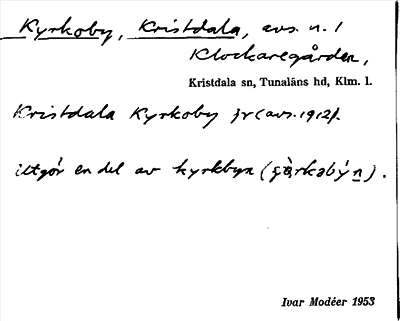 Kyrkoby, Kristdala, avs. n. 1
Klockaregården,
Kristdala sn, Tunaläns hd, Klm. l.
Kristdala Kyrkoby jr (avs. 1912).
utgör en del av kyrkbyn ( ).
Ivar Modéer 1953